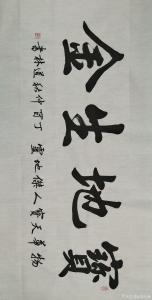 寶地生金
物華天寶人傑地靈 丁酉仲秋道林書